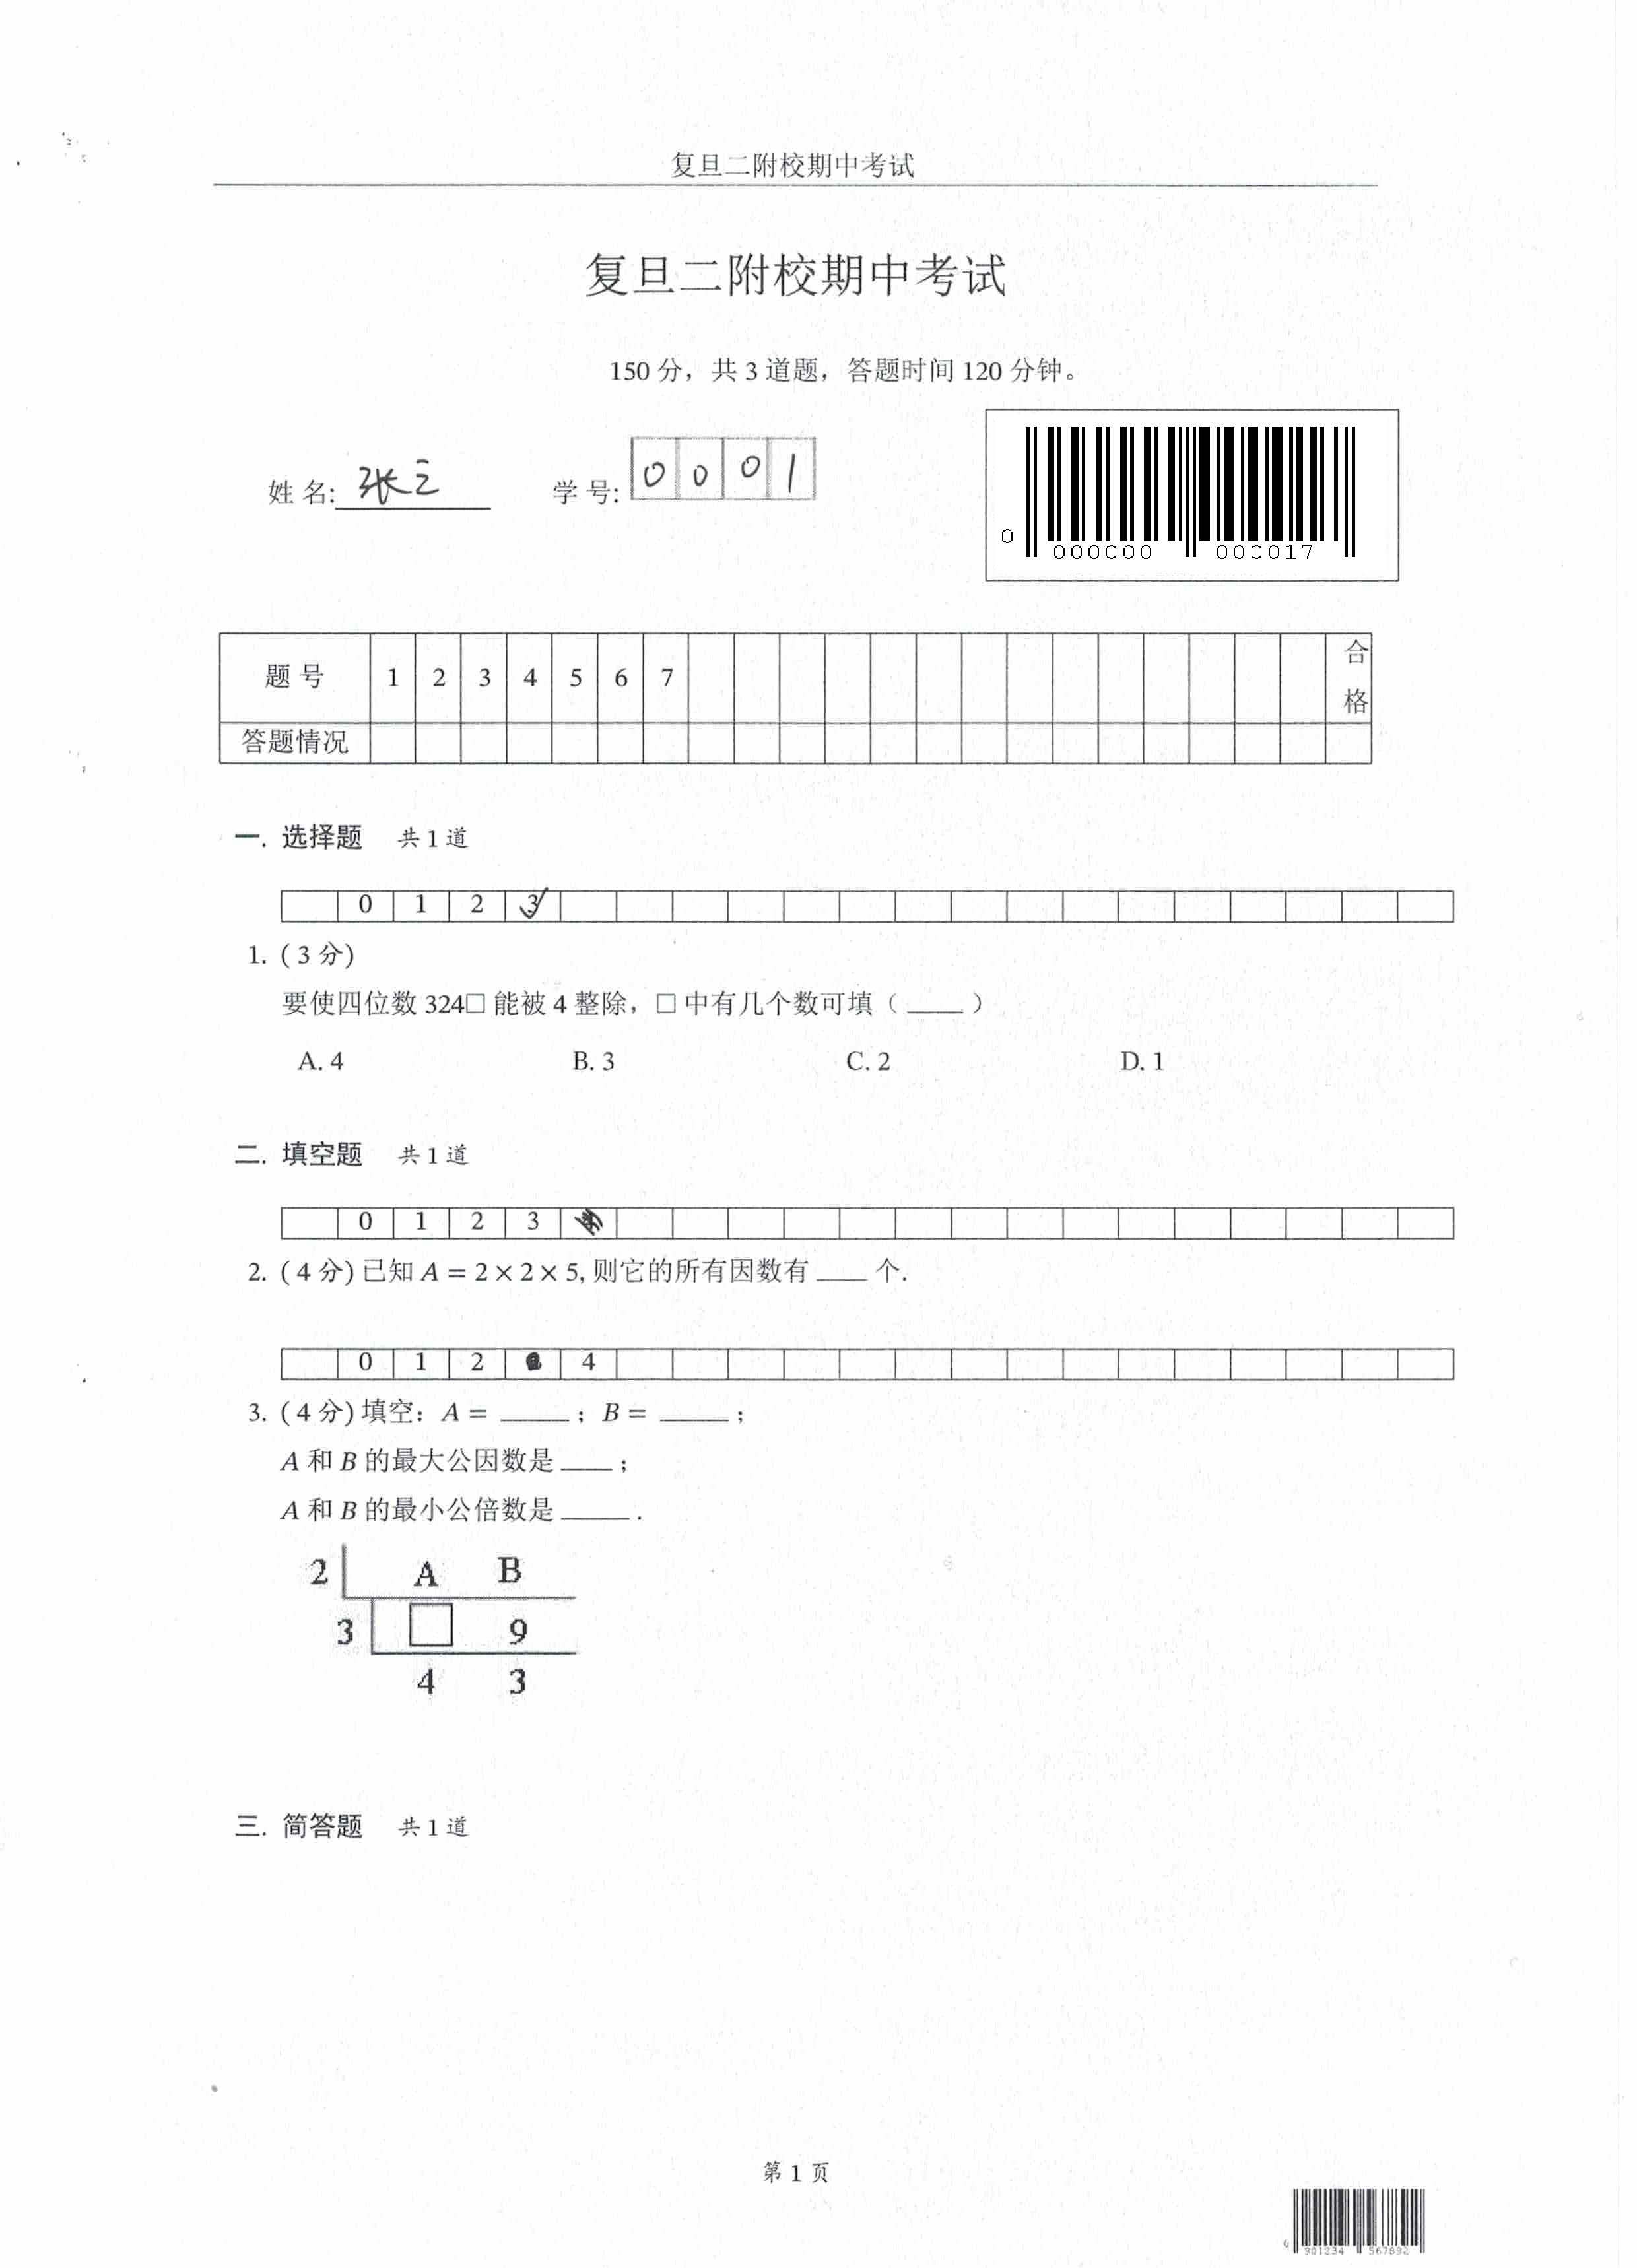 复旦二附校期中考试
复旦二附校期中考试
150 分，共 3 道题，答题时间 120 分钟。
姓 名: 张三 学 号: 0 0 0 1
0 000000 000017
题 号 1 2 3 4 5 6 7 合格
答题情况
一. 选择题 共 1 道
0 1 2 3
1. ( 3 分)
要使四位数 324□ 能被 4 整除，□ 中有几个数可填（ ____ ）
A. 4 B. 3 C. 2 D. 1
二. 填空题 共 1 道
0 1 2 3
2. ( 4 分) 已知 A = 2 × 2 × 5, 则它的所有因数有 ____ 个.
0 1 2 4
3. ( 4 分) 填空：A = _____ ；B = _____ ；
A 和 B 的最大公因数是 ____ ；
A 和 B 的最小公倍数是 _____ .
2 A B
3 □ 9
4 3
三. 简答题 共 1 道
第 1 页
6 901234 567892